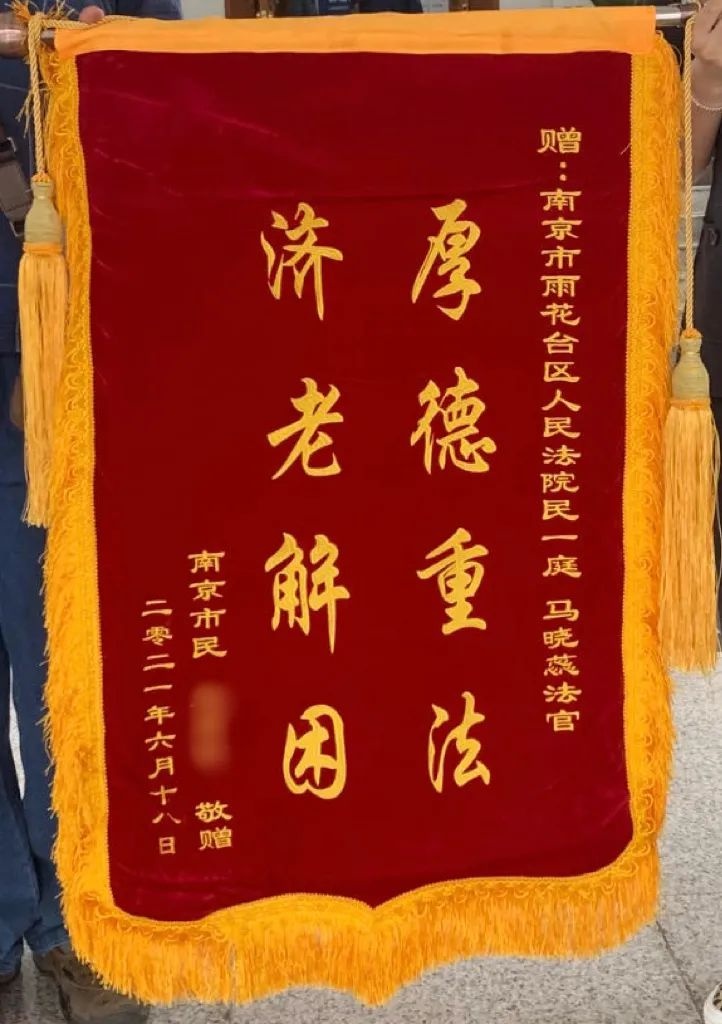 赠：南京市雨花台区人民法院民一庭 马晓蕊法官
厚德重法
济老解困
南京市民 敬赠
二零二一年六月十八日